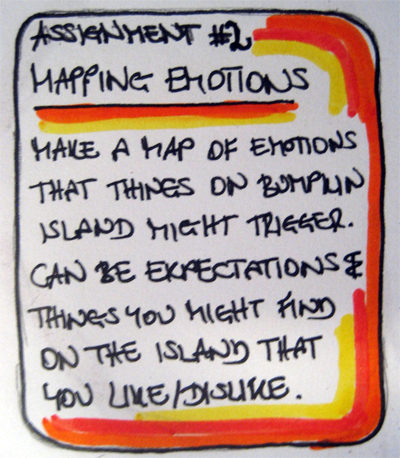 ASSIGNMENT #2
MAPPING EMOTIONS
MAKE A MAP OF EMOTIONS
THAT THINGS ON BUMPKIN
ISLAND MIGHT TRIGGER.
CAN BE EXPECTATIONS &
THINGS YOU MIGHT FIND
ON THE ISLAND THAT
YOU LIKE/DISLIKE.